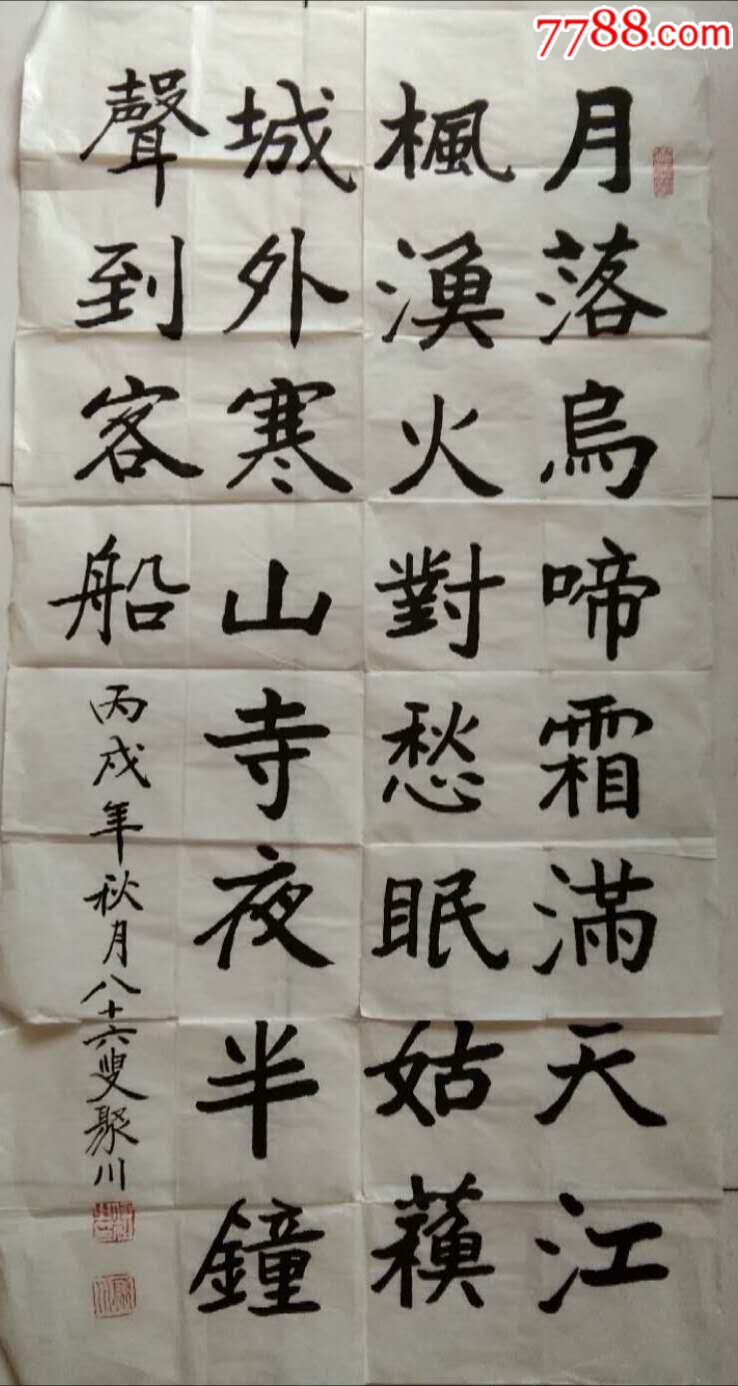 7788.com
月落烏啼霜滿天江
楓漁火對愁眠姑蘓
城外寒山寺夜半鐘
聲到客船
丙戌年秋月八十六叟聚川